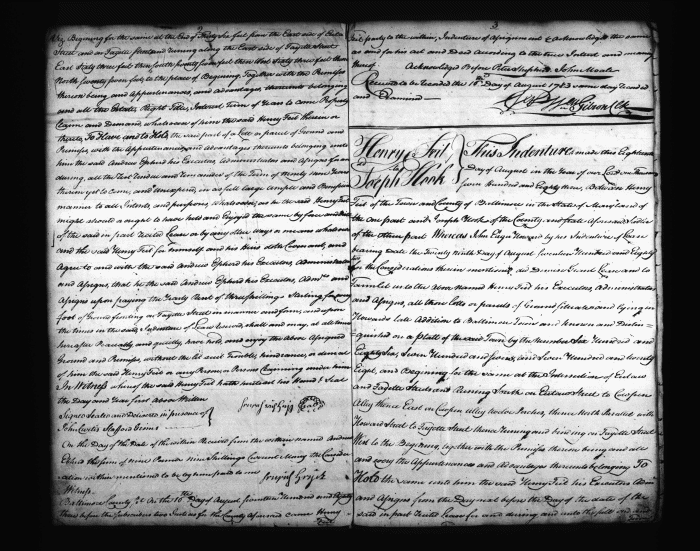 Beginning for the same at the End of Sixty Six feet from the East side of Eutaw
Street and on Fayette Street and running along the East side of Fayette Street
East Sixty three feet then South seventy feet then West Sixty three feet then
North seventy feet to the place of Beginning, Together with the Premises
thereon being and Appurtenances, and advantages, thereunto belonging
and all the Estate, Right, Title, Interest, Term of Years to come, Property
Claim and Demand, whatsoever of him the said Henry Feit therein or
thereto, To Have and to Hold the said part of a Lott or parcel of Ground and
Premises, with the Appurtenances and advantages thereunto belonging unto
him the said Andrew his Executors Administrators and Assigns for and
during, all the rest Residue and remainder of the Term of Ninety nine Years
therein yet to come, and unexpired, in as full large ample and Beneficial
manner to all Intents, and purposes, Whatsoever, as he the said Henry Feit
might should or ought to have held and Enjoyed the same by force and Virtue
of the said in part recited Lease or by any other Ways or means whatsoever
and the said Henry Feit for himself and his Heirs doth Covenant, and
Agree to and with the said Andrew his Executors, Administrators
and Assigns, that he the said Andrew his Executors, Admrs and
Assigns upon paying the Yearly Rent of three shillings Sterling for every
foot of Ground fronting on Fayette Street in manner and form, and upon
the times in the said Indenture of Lease reserved, shall and may, at all times
hereafter Peaceably and quietly have, hold, and enjoy the above Assigned
Ground and Premises, without the let suit Trouble, hindrance, or denial
of him the said Henry Feit or any Person or Persons Claiming under him
In Witness whereof the said Henry Feit hath hereunto set his Hand & Seal
the Day and Year first above Written
Signed Sealed and Delivered in presence of
John Curtis
On the Day of the Date of the within Received from the within named Andrew
the sum of nine Pounds nine Shillings Current Money the Consider
ation within mentioned to be by him paid to me
Witness
Baltimore County Sc. On the 18th Day of August seventeen Hundred and Eighty
three before the Subscribers two Justices for the County aforesaid came Henry
3
Feit party to the within, Indenture of Assignment & Acknowledged the same
as and for his act and Deed according to the true Intent and meaning
thereof
Acknowledged Before Peter Shepherd John Moale
Received to be Recorded the 18th Day of August 1783 same day Recorded
and Examined
Wm Gibson Clk
Henry Feit
to
Joseph Hook
This Indenture made this Eighteenth
Day of August in the Year of our Lord one Thousand
seven Hundred and Eighty three, Between Henry
Feit of the Town and County of Baltimore in the State of Maryland of
the one part and Joseph Hook of the County and State aforesaid
of the other part Whereas John Eager Howard by his Indenture of Lease
bearing date the Twenty Ninth Day of August seventeen Hundred and Eighty
for the Considerations therein mentioned, did Demise Grant Lease and to
Farm let us the above named Henry Feit his Executors, Administrators
and Assigns, all those Lots or parcels of Ground Situate and lying in
Howards late Addition to Baltimore Town and known and distin-
=guished on a platt of the said Town by the Numbers Six Hundred and
Eighty Six, Seven Hundred and four, and Seven Hundred and twenty
Eight, and Beginning for the same at the Intersection of Eutaw
and Fayette Streets and Running South on Eutaw Street to Cowpen
Alley thence East on Cowpen Alley Perches, thence North Parallel with
Howard Street to Fayette Street thence running and binding on Fayette Street
West to the Beginning, together with the Premises thereon being and all
and every the Appurtenances and Advantages thereunto belonging To
Hold the same unto him the said Henry Feit his Executors Admrs
and Assigns from the Day next before the Day of the date of the
said in part recited Lease for and during and unto the full end and